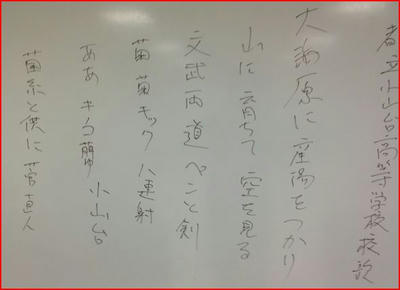 都立小山台高等学校校歌
大海原に産陽をつかり
山に育ちて空を見る
文武両道ペンと剣
菌菌キック八連射
ああキノコ蘭小山台
菌糸と供に菅直人